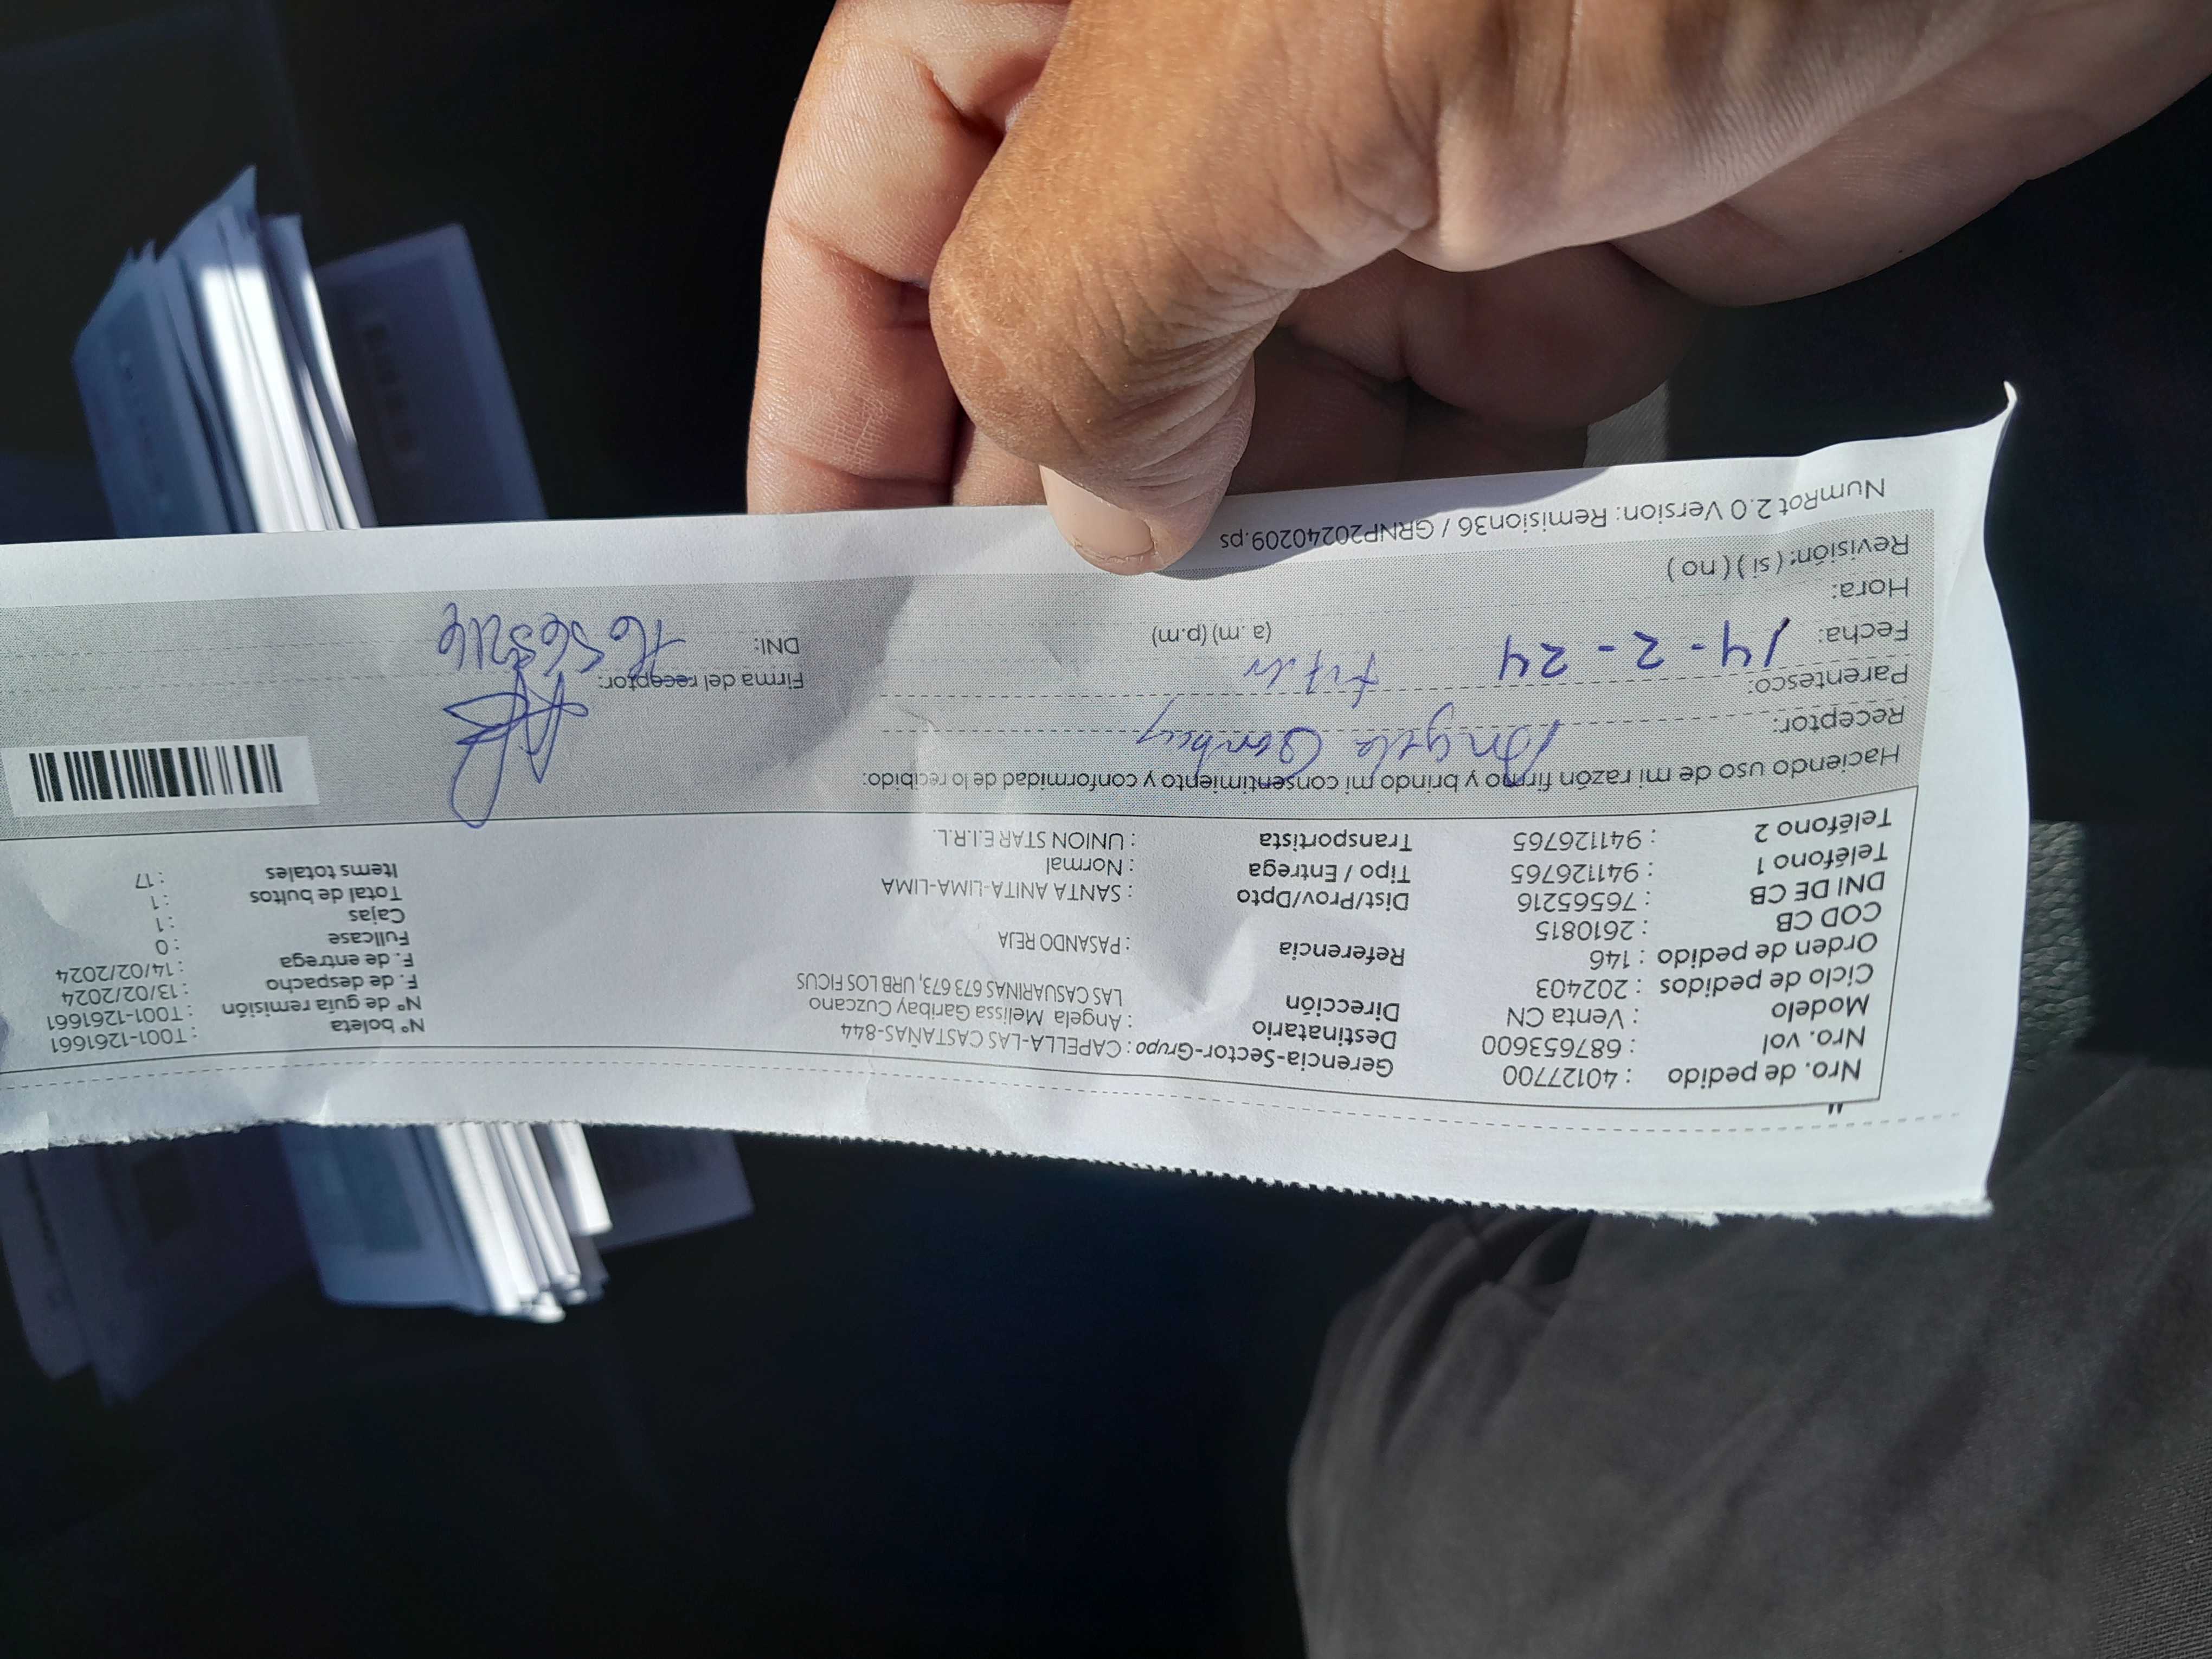 Nro. de pedido : 40127700
Nro. vol : 687653600
Modelo : Venta CN
Ciclo de pedidos : 202403
Orden de pedido : 146
COD CB : 2610815
DNI DE CB : 76565216
Teléfono 1 : 941126765
Teléfono 2 : 941126765
Gerencia-Sector-Grupo : CAPELLA-LAS CASTAÑAS-844
Destinatario : Angela Melissa Garibay Cuzcano
Dirección LAS CASUARINAS 673 673, URB LOS FICUS
Referencia : PASANDO REJA
Dist/Prov/Dpto : SANTA ANITA-LIMA-LIMA
Tipo / Entrega : Normal
Transportista : UNION STAR E.I.R.L.
Nº boleta : T001-1261661
Nº de guía remisión : T001-1261661
F. de despacho : 13/02/2024
F. de entrega : 14/02/2024
Fullcase : 0
Cajas : 1
Total de bultos : 1
Items totales : 17
Haciendo uso de mi razón firmo y brindo mi consentimiento y conformidad de lo recibido:
Receptor: Angela
Parentesco:
Fecha: 14-2-24
Hora: (a.m) (p.m)
Revisión: ( si ) ( no )
Firma del receptor:
DNI: 76565216
NumRot 2.0 Version: Remision36 / GRNP20240209.ps